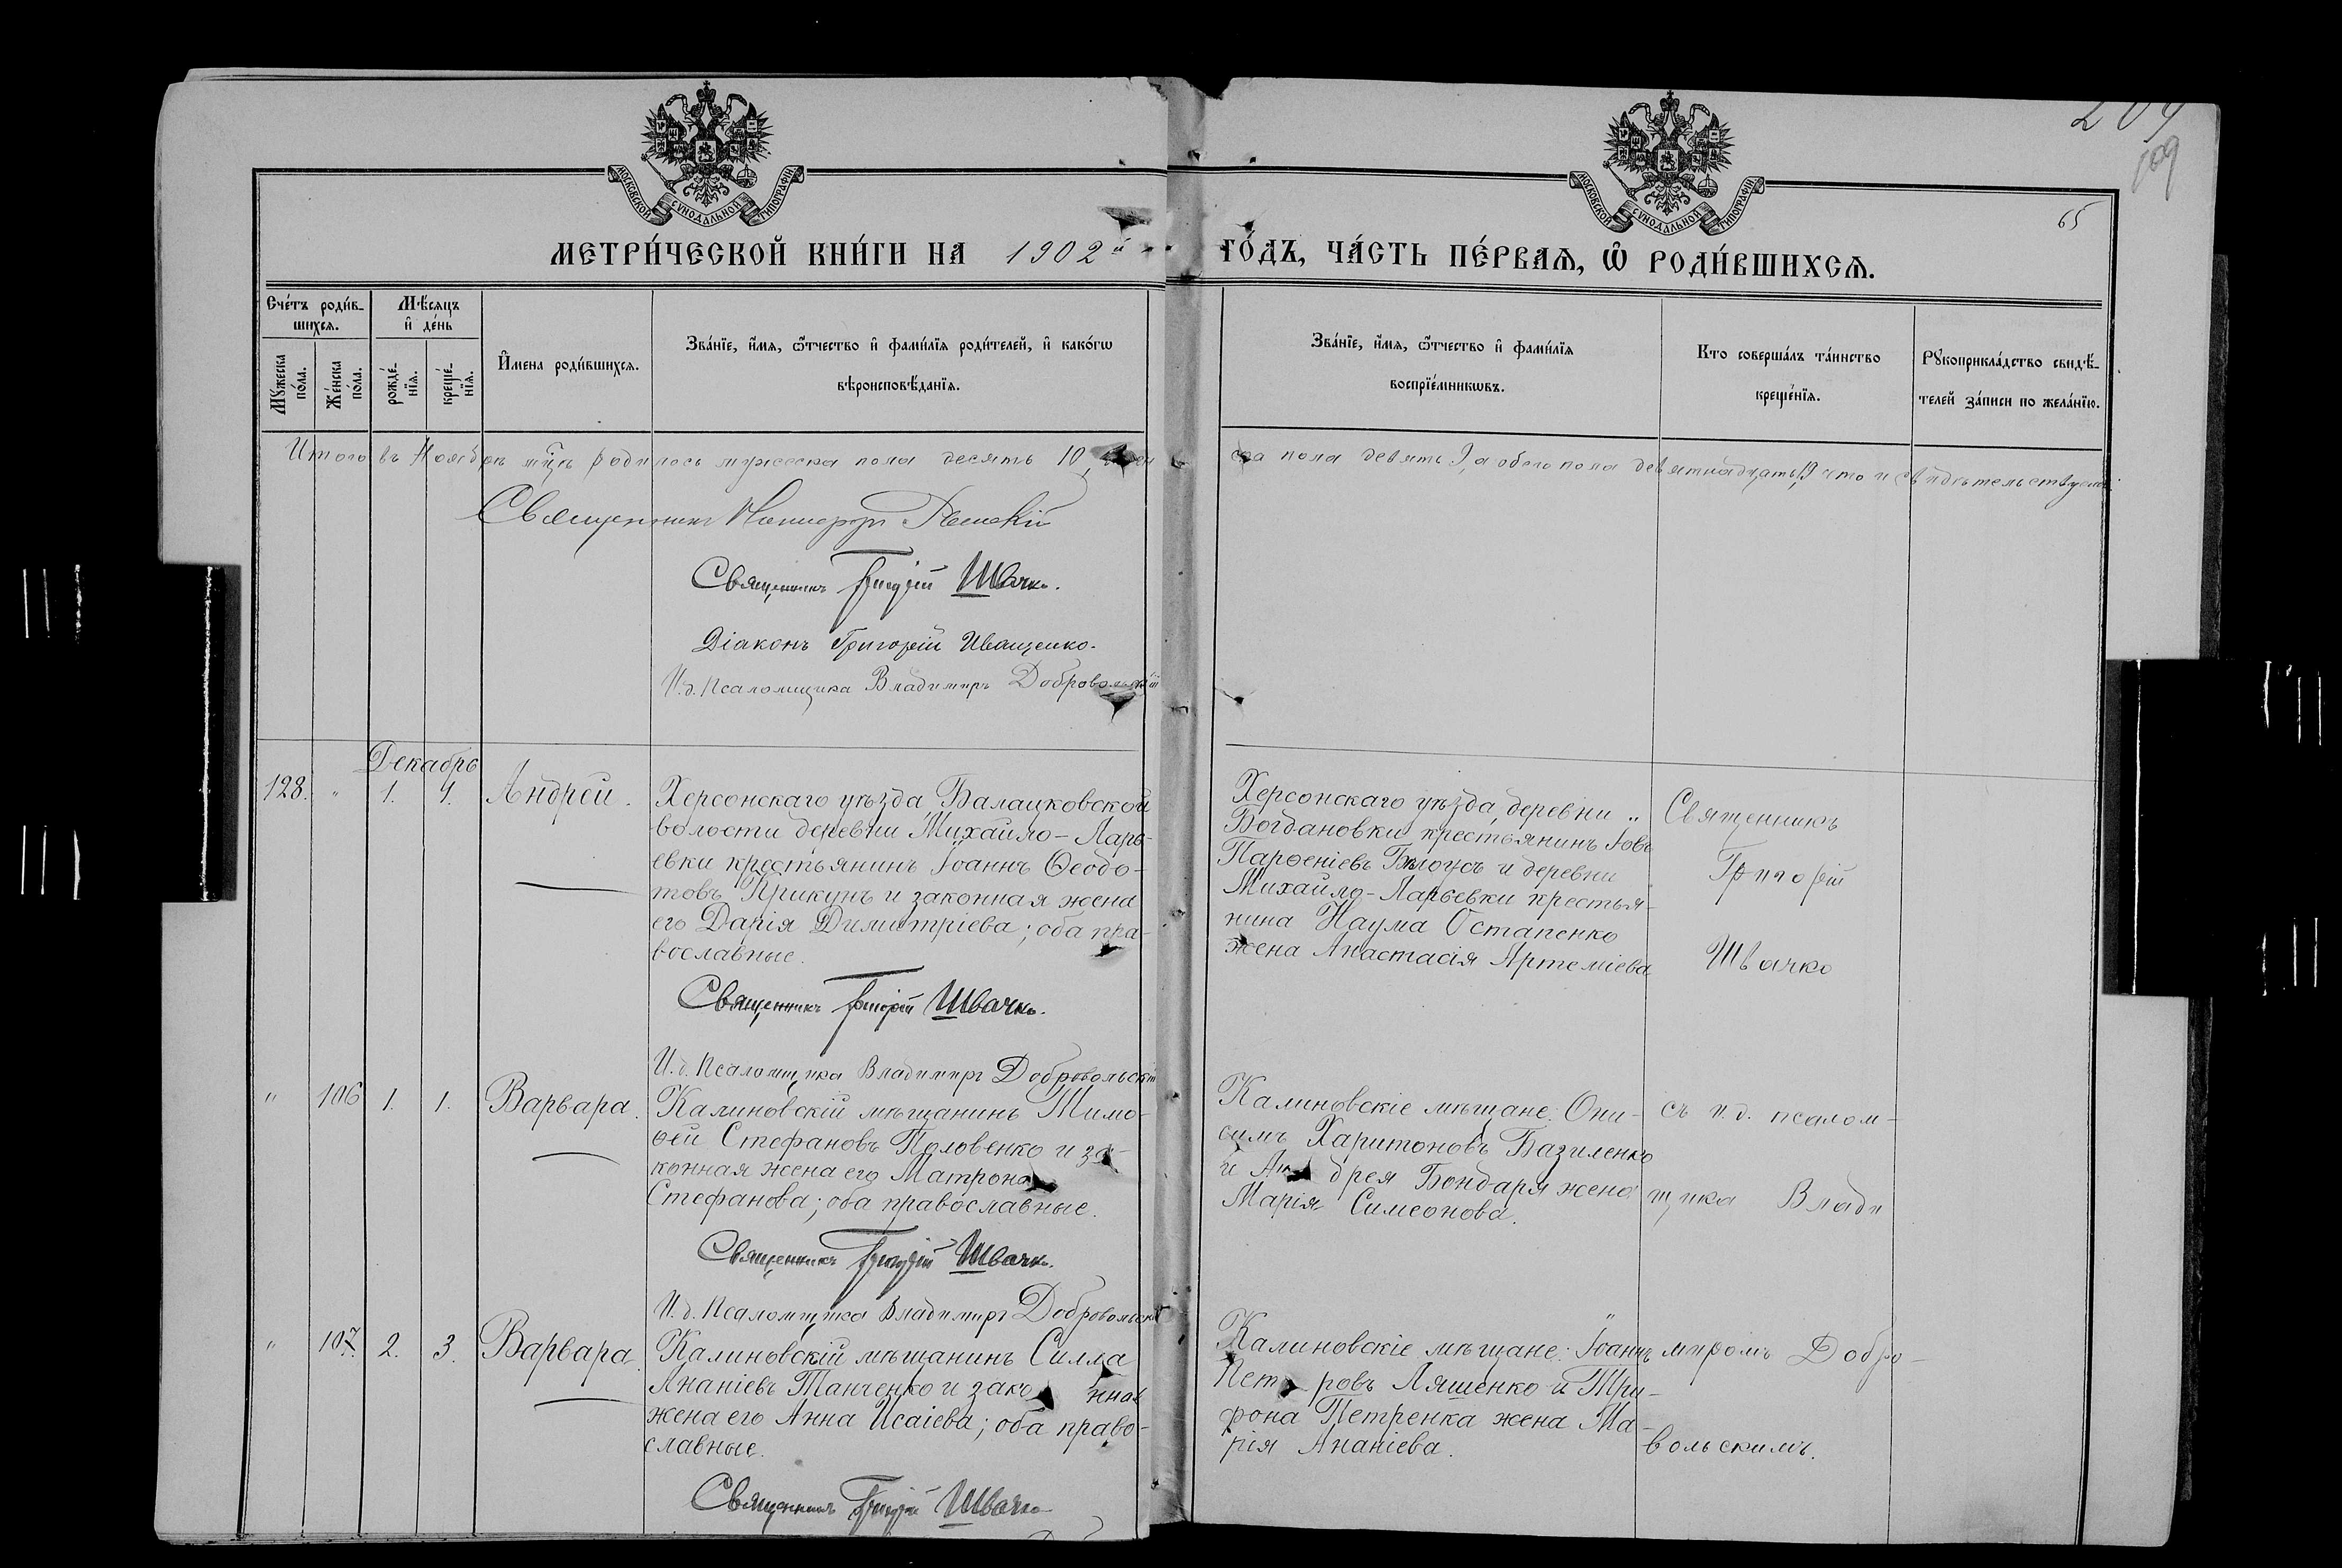 МОСКОВСКОЙ СУНОДАЛЬНОЙ ТИПОГРАФІИ
МОСКОВСКОЙ СУНОДАЛЬНОЙ ТИПОГРАФІИ
204
109
65
МЕТРИ́ЧЕСКОЙ КНИ́ГИ НА 1902й
ГО́ДЪ, ЧА́СТЬ ПЕ́РВАѦ, Ѡ҆ РОДИ́ВШИХСѦ.
Сче́тъ роди́в-
шихсѧ.
Мꙋжеска
по́ла.
Же́нска
по́ла.
Мѣ́сѧцъ
и҆ де́нь
рожде́-
нїѧ.
креще́-
нїѧ.
И҆мена роди́вшихсѧ.
Зва́нїе, и҆́мѧ, ѻ҆́тчество и҆ фами́лїѧ роди́телей, и҆ како́гѡ
вѣроисповѣ́данїѧ.
Зва́нїе, и҆́мѧ, ѻ҆́тчество и҆ фами́лїѧ
воспрїе́мникѡвъ.
Кто соверша́лъ та́инство
креще́нїѧ.
Рꙋкоприкла́дство свидѣ́-
телей за́писи по жела́нїю.
Итого въ Ноябрѣ мцѣ родилось мужеска пола десять 10, жен
ска пола девять 9, а обоего пола девятнадцать 19 что и свидѣтельствуемъ:
Священникъ
Священникъ Григорій Швачко.
Діаконъ Григорій Иващенко.
И.д. Псаломщика Владимиръ Добровольскій
Декабрь
128. " 1. 4. Андрей.
Херсонскаго уѣзда, Балацковской
волости деревни Михайло-Ларь-
евки крестьянинъ Іоаннъ Ѳеодо-
товъ Крикунъ и законная жена
его Дарія Димитріева; оба пра-
вославные.
Священникъ Григорій Швачко.
И.д. Псаломщика Владимиръ Добровольскій
Херсонскаго уѣзда, деревни "
Богдановки крестьянинъ Іовъ
Парѳеніевъ Бѣлоусъ и деревни
Михайло-Ларьевки крестья-
нина Наума Остапенко
жена Анастасія Артеміева
Священникъ
Григорій
Швачко
" 106 1. 1. Варвара.
Калиновскій мѣщанинъ Тимо-
ѳей Стефановъ Половенко и за-
конная жена его Матрона
Стефанова; оба православные.
Священникъ Григорій Швачко.
И.д. Псаломщика Владимиръ Добровольскій
Калиновскіе мѣщане: Они-
симъ Харитоновъ Базиленко
и Андрея Бондаря жена
Марія Симеонова.
съ и.д. псалом-
щика Влади
" 107. 2. 3. Варвара.
Калиновскій мѣщанинъ Силла
Ананіевъ Танченко и законная
жена его Анна Исаіева; оба право-
славные.
Священникъ Григорій Швачко
Калиновскіе мѣщане: Іоаннъ
Петровъ Ляшенко и Три-
фона Петренка жена Ма-
рія Ананіева.
миромъ Добро-
вольскимъ.